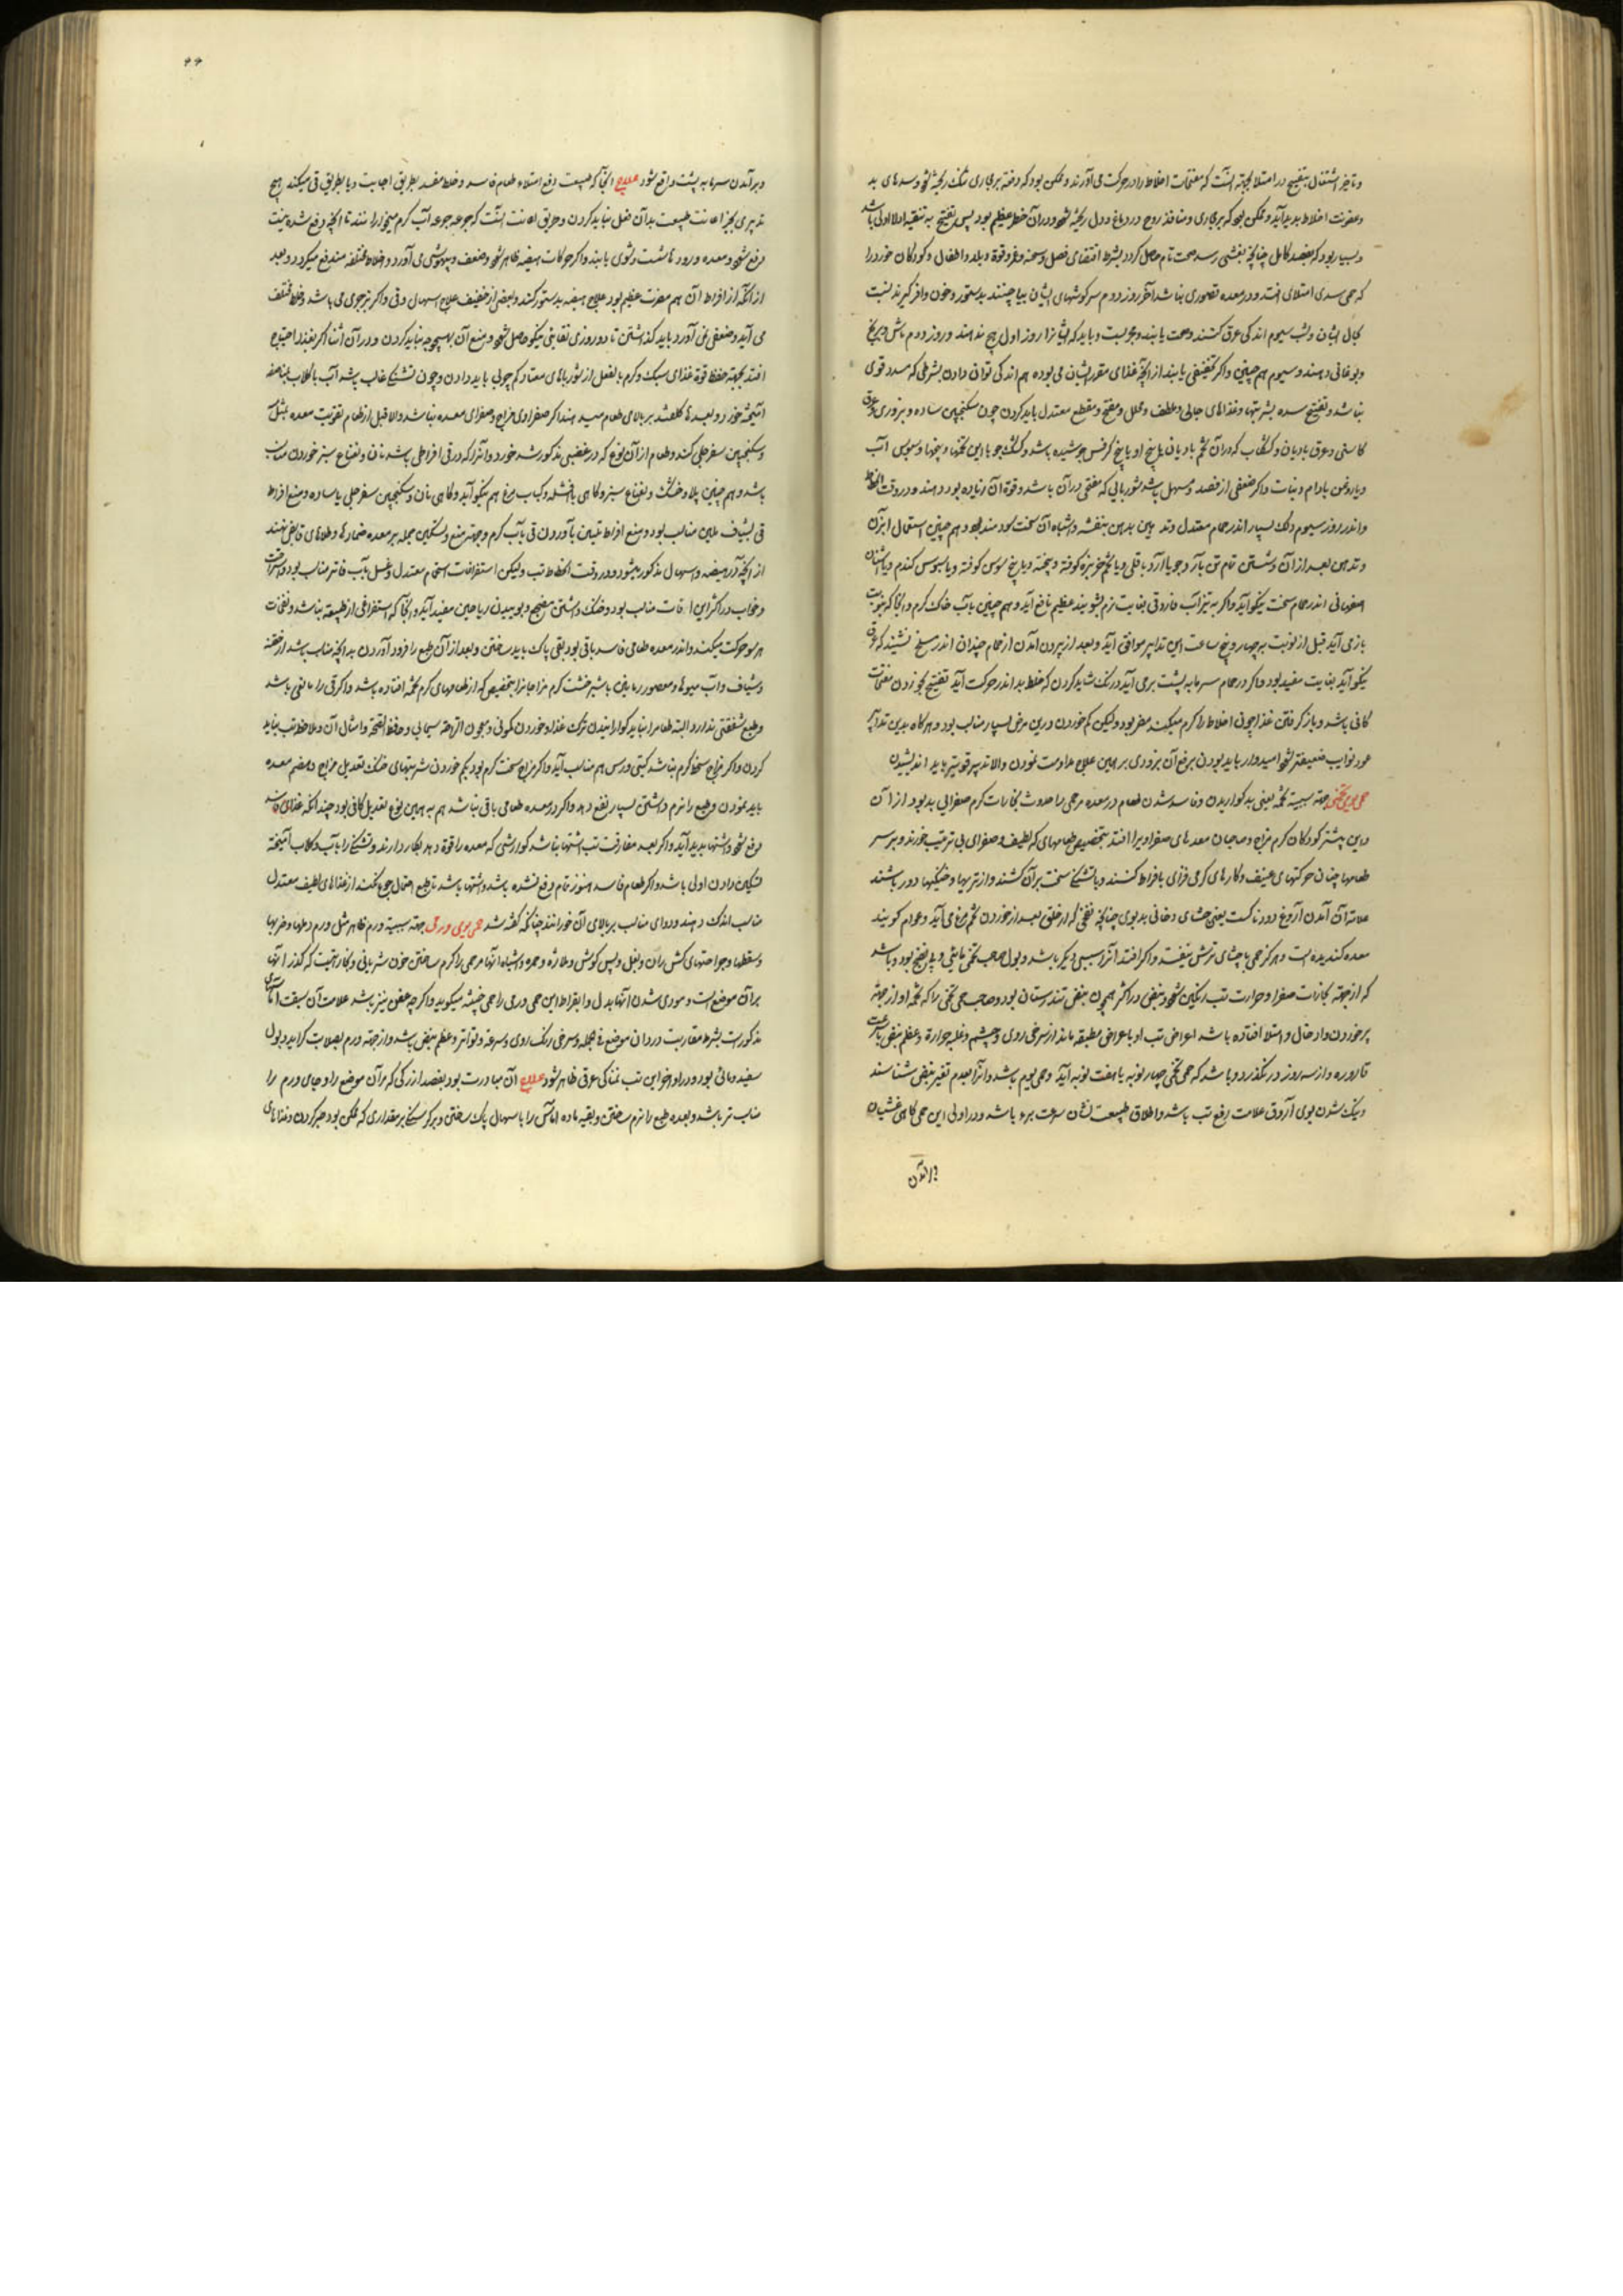 و تاخیر اشتغال بتفتیح در امتلا بجهة آنست که مفتحات اخلاط را در حرکت می آورند و ممکن بود که دفعة بر مجاری تنگ ریخته شود و سدهای بد
و عفونت اخلاط پدید آید و ممکن بود که بر مجاری و منافذ روح در دماغ و دل ریخته شود و در آن خطر عظیم بود پس تفتیح به تنقیه اولا اولی باشد
و بسیار بود که بفصد کامل چنانچه بغشی رسد صحت تام حاصل گردد بشرط اقتضای فصل و سحنه و عمر و قوة و بلد و اطفال و کودکان خورد را
که حمی سدی امتلای افتد و در معده قصوری نباشد آخر روز دوم سر گوشهای ایشان بیاچنند بدستور و خون وافر گیرند نسبت
بحال ایشان و شب سیوم اندکی عرق کنند و صحت یابند و مجربست و باید که ایشانرا روز اول هیچ ندهند و روز دوم ماش و برنج
و بوغانی دهند و سیوم هم چنین و اگر تخفیفی یابند از آنچه غذای مقرر ایشان می بوده هم اندکی توان دادن بشرطی که سدد قوی
نباشد و تفتیح سده بشربتها و غذاهای جالی و ملطف و محلل و مفتح و مقطع معتدل باید کردن چون سکنجبین ساده و بزوری و عرق
کاسنی و عرق بادیان و کشکاب که در آن تخم بادیان یا بیخ او یا بیخ کرفس جوشیده باشد و کشک جو با این تخمها و بیخها و سبوس آب
و با روغن بادام و نبات و اگر ضعفی از فصد و مسهل باشد شوربایی که مفتحی در آن باشد و قوة آن زیاده بود دهند و در وقت انحطاط
و اندر روز سیوم دلک بسیار اندر حمام معتدل و تدهین بدهن بنفشه و اشباه آن سخت سودمند بود و هم چنین استعمال آبزن
و تدهین بعد از آن و شستن تمام تن بآرد جو یا آرد باقلی و یا تخم خربزه کوفته و پخته و یا بیخ سوسن کوفته و یا سبوس گندم و یا اشنان
اصفهانی اندر حمام سخت نیکو آید و اگر به تیزآب فاروقی بغایت نرم بشویند عظیم نافع آید و هم چنین بآب خاک گرم و آنجا که بنوبت
بازمی آید قبل از نوبت بر چهار و پنج ساعت این تدابیر موافق آید و بعد از بیرون آمدن از حمام چندان اندر مسلخ نشیند که عرق
نیکو آید بغایت مفید بود و اگر در حمام سرما به پشت برمی آید درنگ نشاید کردن که خلط بد اندر حرکت آید تفتیح بخوردن مفتحات
کافی باشد و باز گرفتن غذا چون اخلاط را گرم میکند مضر بود و لیکن کم خوردن درین مرض بسیار مناسب بود و هرگاه بدین تدابیر
عود نوایب ضعیفتر شود امیدوار باید بودن برفع آن بزودی بر همین علاج مداومت نمودن والا تدبیر قویتر باید اندیشیدن
حمی یومی تخمی جهة سببیة تخمه یعنی بد گواریدن و فاسد شدن طعام در معده مر حمی را حدوث بخارات گرم صفرایی بد بود از آن
و این بیشتر کودکان گرم مزاج و صاحبان معدهای صفراویرا افتد بتخصیص طعامهای که لطیف و صفرای بی ترتیب خورند و بر سر
طعامها چنان حرکتهای عنیف و کارهای گرمی فزای بافراط کنند و یا تشنگی سخت بر آن کشند و از تریها و خنکیها دور باشند
علامة آن آمدن آروغ دودناکست یعنی جشای دخانی بدبوی چنانچه نفخی که از خلق بعد از خوردن تخم مرغ می آید و عوام گویند
معده گندیده است و هرگز حمی با جشای ترش نیفتد و اگر افتد آنرا سببی دیگر باشد و بول صاحب تخمی مایئی و بی نضج بود و باشد
که از جهة بخارات صفرا و حرارت تب رنگین شود و نبض در اکثر همچون نبض تندرستان بود و صاحب حمی تخمی را که تخمه او از جهة
پر خوردن و ادخال و امتلا افتاده باشد اعراض تب او باعراض مطبقه ماند از سرخی روی و چشم و غلبه حرارة و عظم نبض با رقت
قاروره و از سه روز درنگذرد و باشد که حمی تخمی چهار نوبه یا هفت نوبه آید و حمی یوم باشد و آنرا بعدم تغیر نبض شناسند
و نیک شدن بوی آروق علامت رفع تب باشد و اطلاق طبیعت نشان سرعت برء باشد و در اولی این حمی گاهی غشیان
و برآمدن سرما به پشت واقع شود علاج آنجا که طبیعت دفع امتلاء طعام فاسد و خلط مفسد بطریق اجابت و یا بطریق قی میکند هیچ
تدبیری بجز اعانت طبیعت بدان فعل نباید کردن و طریق اعانت آنست که جرعه جرعه آب گرم میخورانند تا آنچه دفع شده نیست
دفع شود و معده و رودها شست و شوی یابند و اگر حرکات هیضه ظاهر شود و ضعف و بیهوشی می آورد و اخلاط مختلفه مندفع میگردد و بعد
از آنکه از افراط آن هم مضرت عظیم بود علاج هیضه بدستور کنند و بعضی از خفیف علاج اسهال و قی و اگر تبرجوی می باشد و خلط مختلف
می آید و ضعفی نمی آورد باید گذاشتن تا دو روزی نقایی نیکو حاصل شود و منع آن بهیچوجه نباید کردن و در آن اثنا اگر بغذا احتیاج
افتد بجهة حفظ قوة غذای سبک و گرم بالفعل از شورباهای معتاد کم چربی باید دادن و چون تشنگی غالب باشد آب با گلاب بمناصفه
آمیخته خورد و بعدها گلقند بر بالای طعام میدهند اگر صفراوی مزاج و صفرای معده نباشد والا قبل از طعام تقویت معده بمثل
و سکنجبین سفرجلی کند و طعام از آن نوع که در غضبی مذکور شد خورد و آنرا که در قی افراطی باشد نان و نعناع سبز خوردن مناسب
باشد و هم چنین پلاو خشک و نعناع سبز و گاهی با فشله و کباب مرغ هم نیکو آید و گاهی نان و سکنجبین سفرجلی یا ساده و منع افراط
قی بشیاف ملین مناسب بود و منع افراط تلیین بآوردن قی بآب گرم و جهة منع و تسکین جمله بر معده ضمادها و طلاهای قابض نهند
از آنچه در هیضه و اسهال مذکور میشود و در وقت انحطاط تب و لیکن استفراغات استحمام معتدل و غسل بآب فاتر مناسب بود و استراحت
و خواب در اکثر این اوقات مناسب بود و خنک داشتن مضجع و بوییدن ریاحین مفید آید و آنجا که استفراغی از طبیعت نباشد و نفخات
هرسو حرکت میکند و اندر معده طعامی فاسد باقی بود بقی پاک باید ساختن و بعد از آن طبع را فرود آوردن به آنچه مناسب باشد از حقنه
و شیاف و آب میوها و معصور رمانین با شیرخشت گرم مزاجانرا بتخصیص که از طعامهای گرم تخمه افتاده باشد و اگر قی را مانعی باشد
و طبع شفقتی ندارد البته طعام را نباید گوارانیدن ترک غذا و خوردن کمونی و معجون الراحة سیمابی و حافظ الصحة و امثال آن و ملاحظه تب نباید
کردن و اگر مزاج سخط گرم نباشد کیتی ورس هم مناسب آید و اگر مزاج سخت گرم بود بکم خوردن شربتهای خنک تعدیل مزاج و هضم معده
باید نمودن و طبع را نرم داشتن بسیار نفع دهد و اگر در معده طعامی باقی نباشد هم به همین نوع تعدیل کافی بود چندانکه غذای فاسد
دفع شود و اشتها پدید آید و اگر بعد مفارقت تب اشتها نباشد گوارشی که معده را قوة دهد بکار دارند و تشنگی را بآب و گلاب آمیخته
تسکین دادن اولی باشد و اگر طعام فاسد هنوز تمام دفع نشده باشد و اشتها باشد تا طبع احتمال جوع نکند از غذاهای لطیف معتدل
مناسب اندک دهند و دوای مناسب بر بالای آن خورانند چنانکه گفته شد حمی یومی ورمی جهة سببیة ورم ظاهر مثل ورم دملها و ضربها
و سقطها و جراحتهای کش ران و بغل و پس گوش و ملازه و حمره و اشباه آنها مر حمی را گرم ساختن خون شریانی و بخار آنست که گذر آنها
بر آن موضع است و مودی شدن آنها بدل و ابقراط این حمی ورمی را حمی خبیثه میگوید و اگر چه عفن نیز باشد علامت آن سبقت آماس
مذکورست بشرط مقاربت و درد آن موضع فی الجمله و سرخی رنگ روی و سرعة و تواتر و عظم نبض باشد و از جهة ورم بصلابت گراید و بول
سفید و مائی بود و در اواخر این تب نمناکی عرقی ظاهر شود علاج آن مبادرت بود بفصد از رگی که مر آن موضع را و جای ورم را
مناسب تر باشد و بعده طبع را نرم ساختن و بقیه ماده آماس را باسهال پاک ساختن و بر گرسنگی بر مقداری که ممکن بود صبر کردن و غذاهای